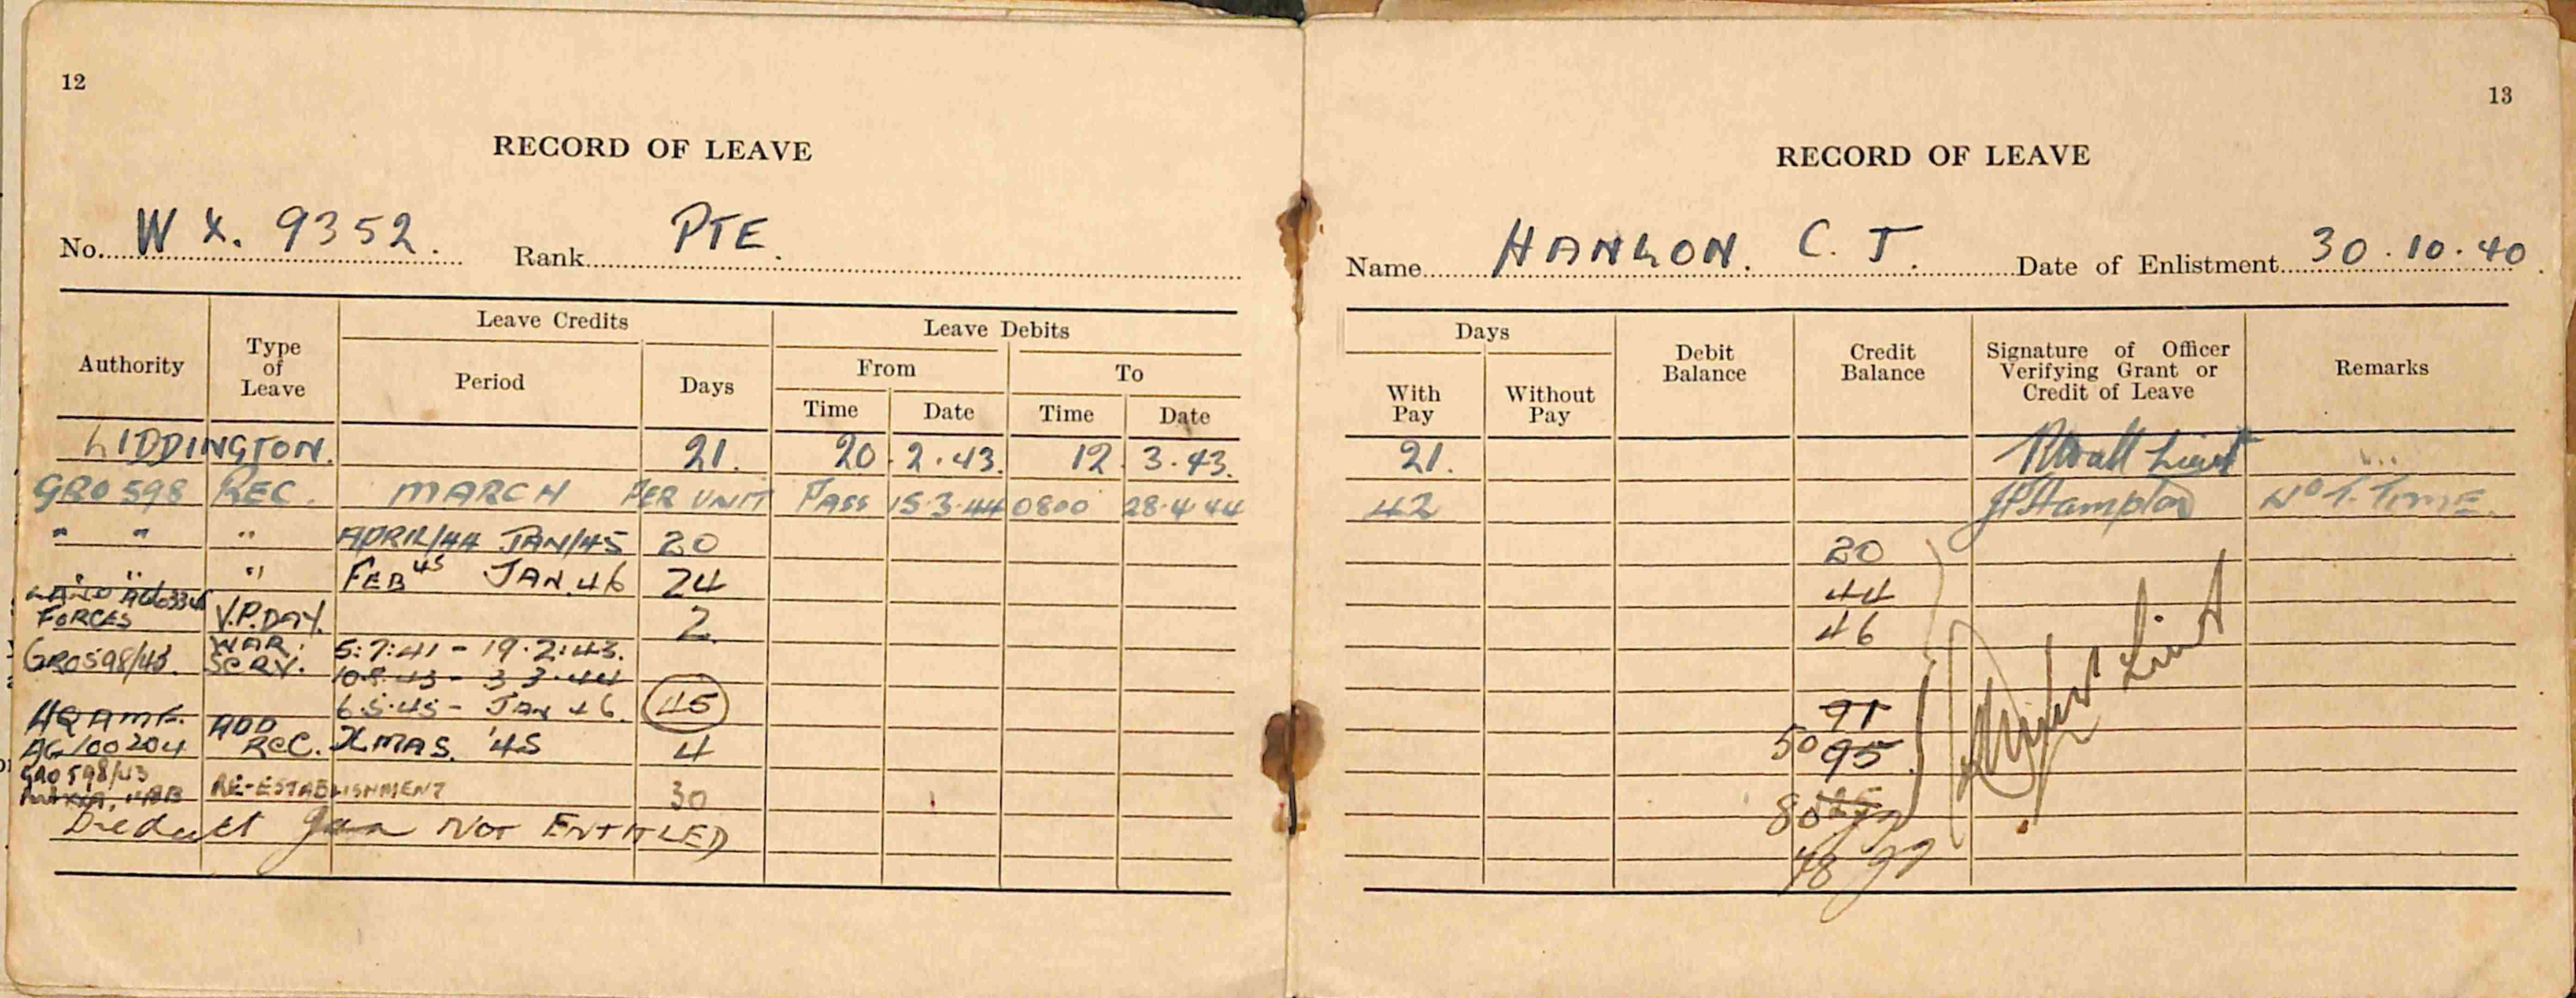 12
RECORD OF LEAVE
No. W X. 9352. Rank PTE.
Leave Credits Leave Debits
Authority Type of Leave Period Days From To
Time Date Time Date
LIDDINGTON. 21. 20.2.43. 12.3.43.
GRO 598 REC. MARCH PER UNIT PASS 15.3.44 0800 28.4.44
" " " APRIL/44 JAN/45 20
" " " FEB 45 JAN.46 24
FORCES V.P.DAY. 2.
GRO598/43. WAR. SERV. 5:7:41 - 19.2:43.
10.8.43 - 3 3.44
6.5.45 - JAN 46. 45
HQ AMF. ADD
AG/100204 REC. XMAS. '45 4
GRO 598/43
RE-ESTABLISHMENT 30
Deduct Jan NOT ENTITLED
13
RECORD OF LEAVE
Name HANLON. C. J. Date of Enlistment 30.10.40.
Days Debit Balance Credit Balance Signature of Officer Verifying Grant or Credit of Leave Remarks
With Pay Without Pay
21. Lieut
42 JHampton NO T. TIME.
20
44
46
Lieut
91
50 95
80
78